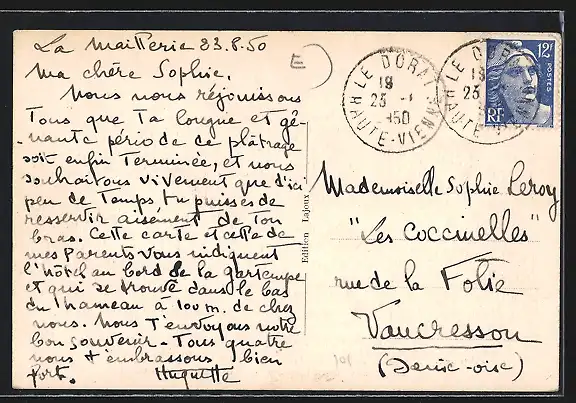 La Maitterie 23.8.50
Ma chère Sophie,
Nous nous réjouissons
Tous que ta longue et gê-
nante période de plâtrage
soit enfin terminée, et nous
souhaitons vivement que d'ici
peu de temps tu puisses de
resservir aisément de ton
bras. Cette carte et celle de
mes parents vous indiquent
l'hôtel au bord de la gartempe
et qui se trouve dans le bas
du hameau à 100 m. de chez
nous. Nous t'envoyons notre
bon souvenir - Tous quatre
nous t'embrassons bien
fort. Huguette
E
Edition Lajoux
LE DORAT
18
23
1950
HAUTE-VIENNE
LE DORAT
18
23
HAUTE-VIENNE
12F
POSTES
RF
Mademoiselle Sophie Leroy
"Les Coccinelles"
rue de la Folie
Vaucresson
(Seine-oise)